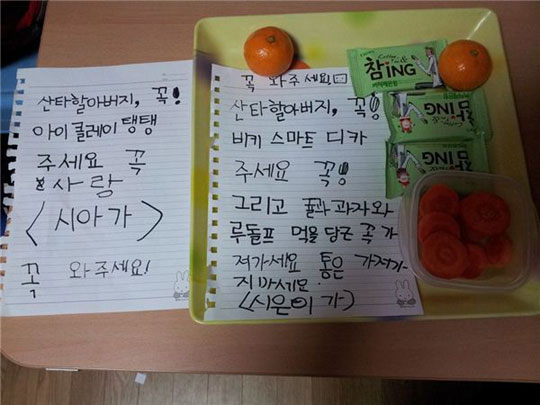 산타할아버지, 꼭!
아이클레이 탱탱
주세요 꼭
사랑
<시아가>
꼭 와주세요!
꼭 와주세요!
산타할아버지, 꼭!!
비키 스마트 디카
주세요 꼭!!
그리고 귤과 과자와
루돌프 먹을 당근 꼭 가
져가세요 통은 가져가
지 마세요.
<시은이 가>
참ing
참ing
참ing